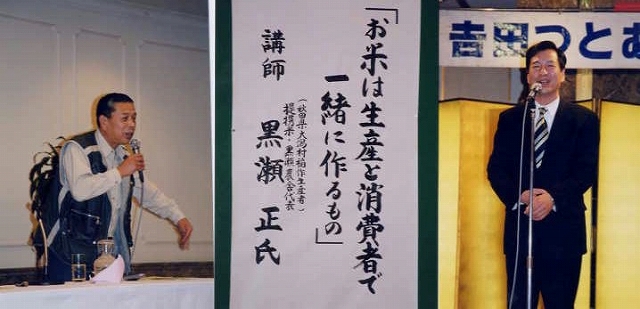 「お米は生産と消費者で
一緒に作るもの」
(秋田県大潟村稲作生産者)
提携米・黒瀬農舎代表
講師 黒瀬 正氏
吉田つとむ